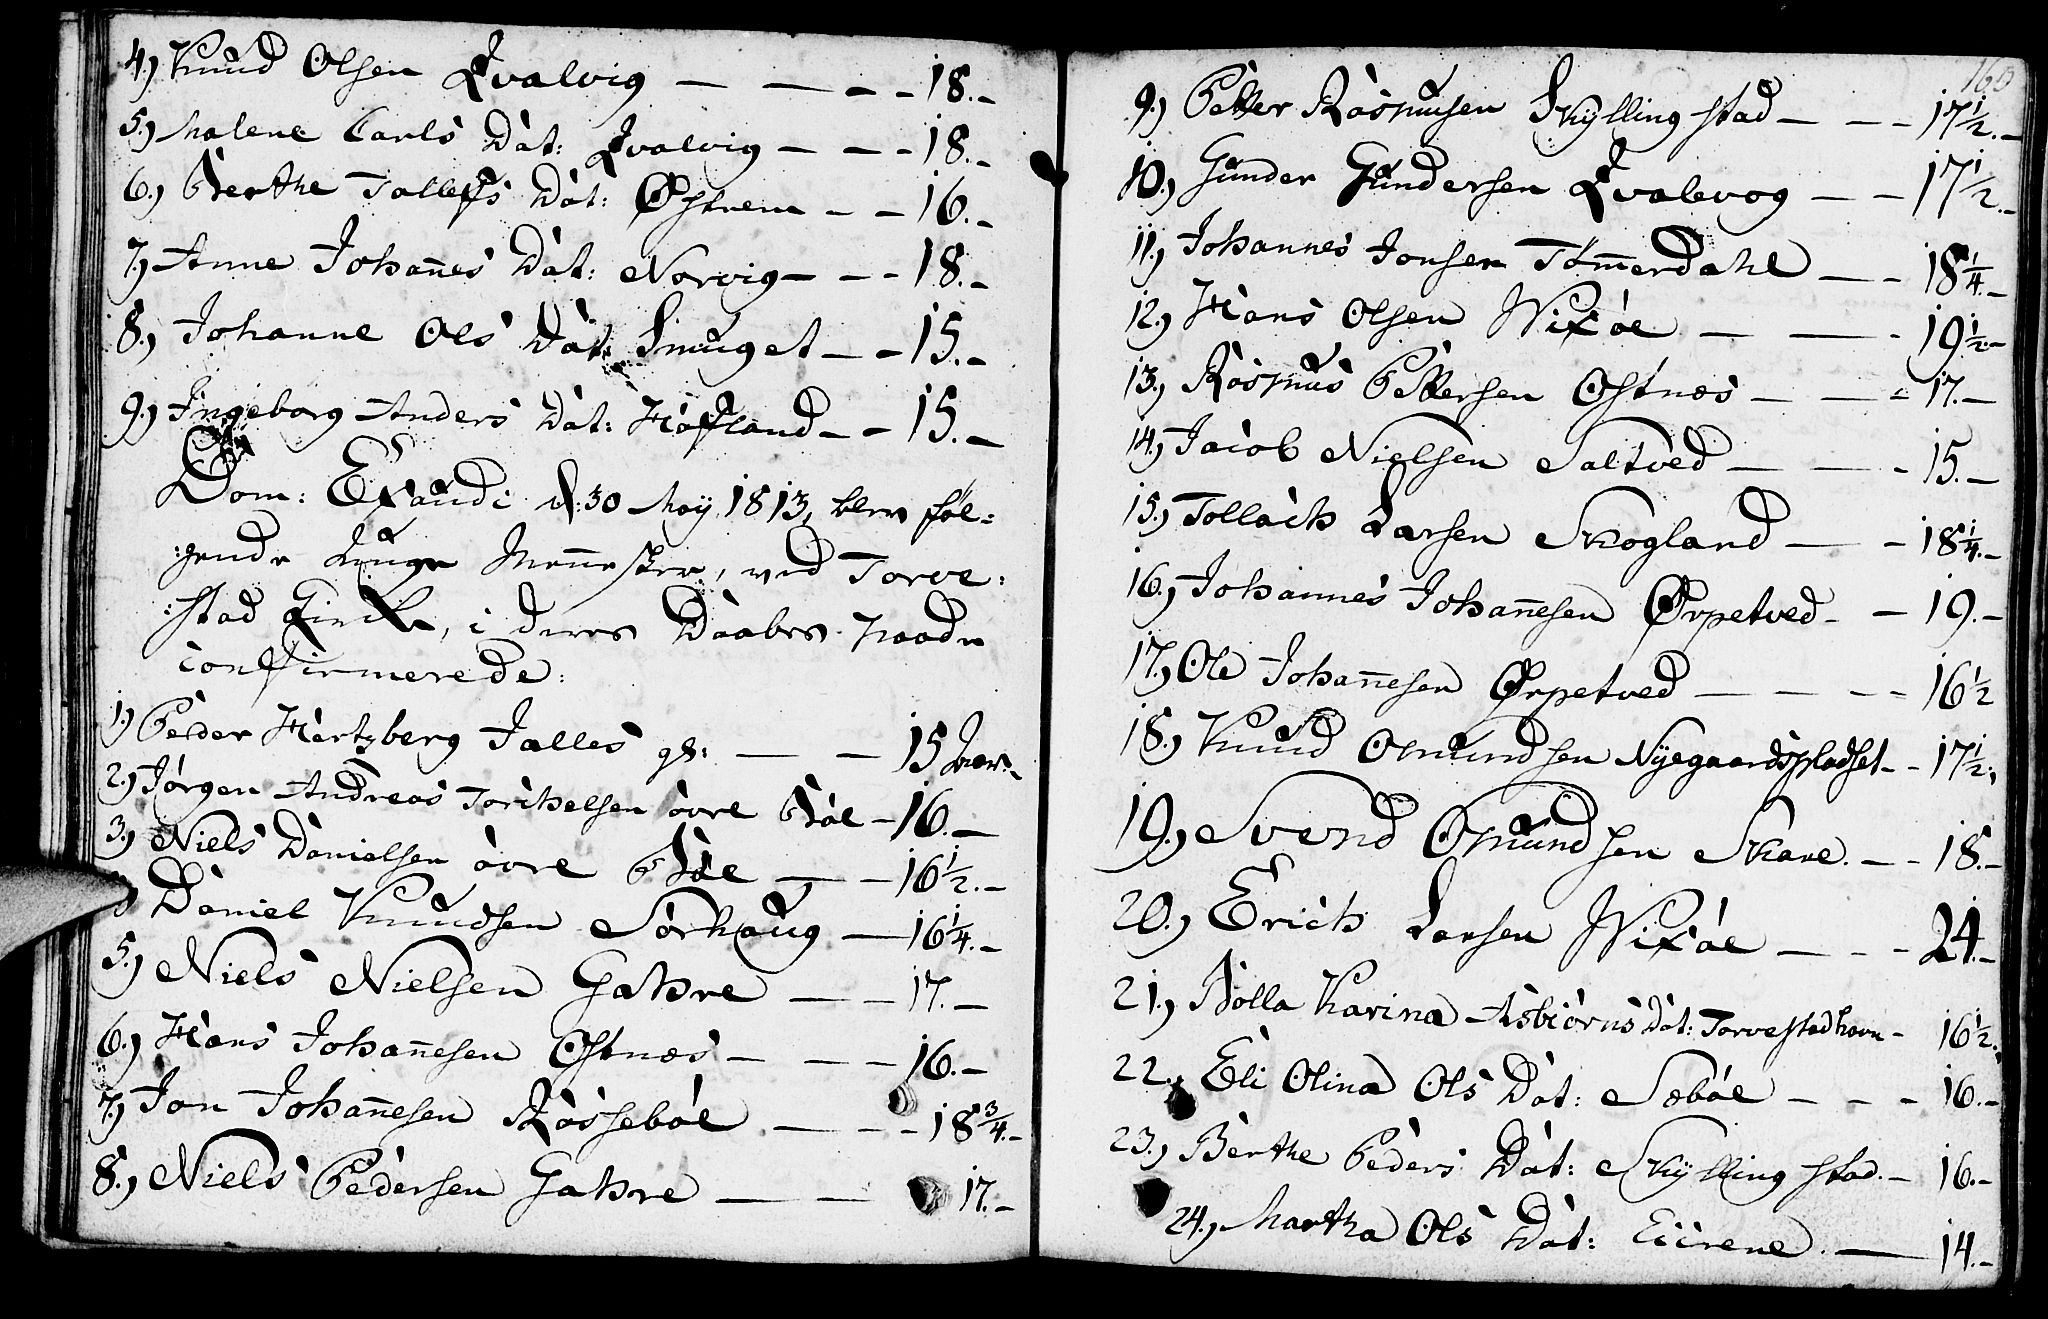 4.) Knud Olsen Qvalvig — — — - 18.-
5.) Malene Carls Dat: Qvalvig — — - 18.-
6.) Berthe Tallefs Dat: Østrem - - 16.-
7.) Anne Johan̄es Dat: Norvig — - - 18.-
8.) Johanne Ols Dat: Smuget - - 15.-
9.) Ingeborg Anders Dat: Hafland - - 15.-
Dom: Exaudi d: 30 May 1813, blev føl=
:gende Unge Men̄esker, ved Torve:
:stad Kirke, i deres Daabes Naade
confirmerede:
1.) Peder Hertzberg Jalles gd: — — 15 Aar.-
2.) Jørgen Andreas Torichelsen øvre Bøe - 16.-
3.) Niels Danielsen øvre Bøe — - 16 1/2.-
Daniel Knudsen Sørhaug — 16 1/4.-
5.) Niels Nielsen Gahre — - 17.-
6.) Hans Johan̄esen Østnæs - — - 16.-
7.) Jon Johan̄esen Røssebøe — - - 18 3/4.-
8.) Niels Pedersen Gahre — — 17.-
160
9.) Petter Rasmusen Skÿllingstad - — - 17 1/2.-
10.) Gunder Gundersen Qvalevog — - 17 1/2.-
11.) Johannes Jonsen Tøm̄erdahl — - 18 1/4.-
12.) Hans Olsen Vixøe — — - 19 1/2.-
13.) Rasmus Pettersen Østnæs - — - 17.-
14.) Jacob Nielsen Saltved — — - 15.-
15.) Tollach Larsen Skogland — - 18 1/4.-
16.) Johannes Johan̄esen Ørpetved - - 19.-
17.) Ole Johan̄esen Ørpetved — — - - 16 1/2
18.) Knud Omundsen Nyegaardspladset - - 17 1/2.-
19.) Svend Omundsen Skare. - - 18.-
20.) Erich Larsen Vixøe — - - 24.-
21.) Bolla Karina Asbiørns Dat: Torvestadhavn - 16 1/2.-
22.) Eli Olina Ols Dat: Sæbøe - - - 16.-
23.) Berthe Peders Dat: Skÿllingstad. - 16.-
24.) Martha Ols Dat: Eiirene. — 14.-